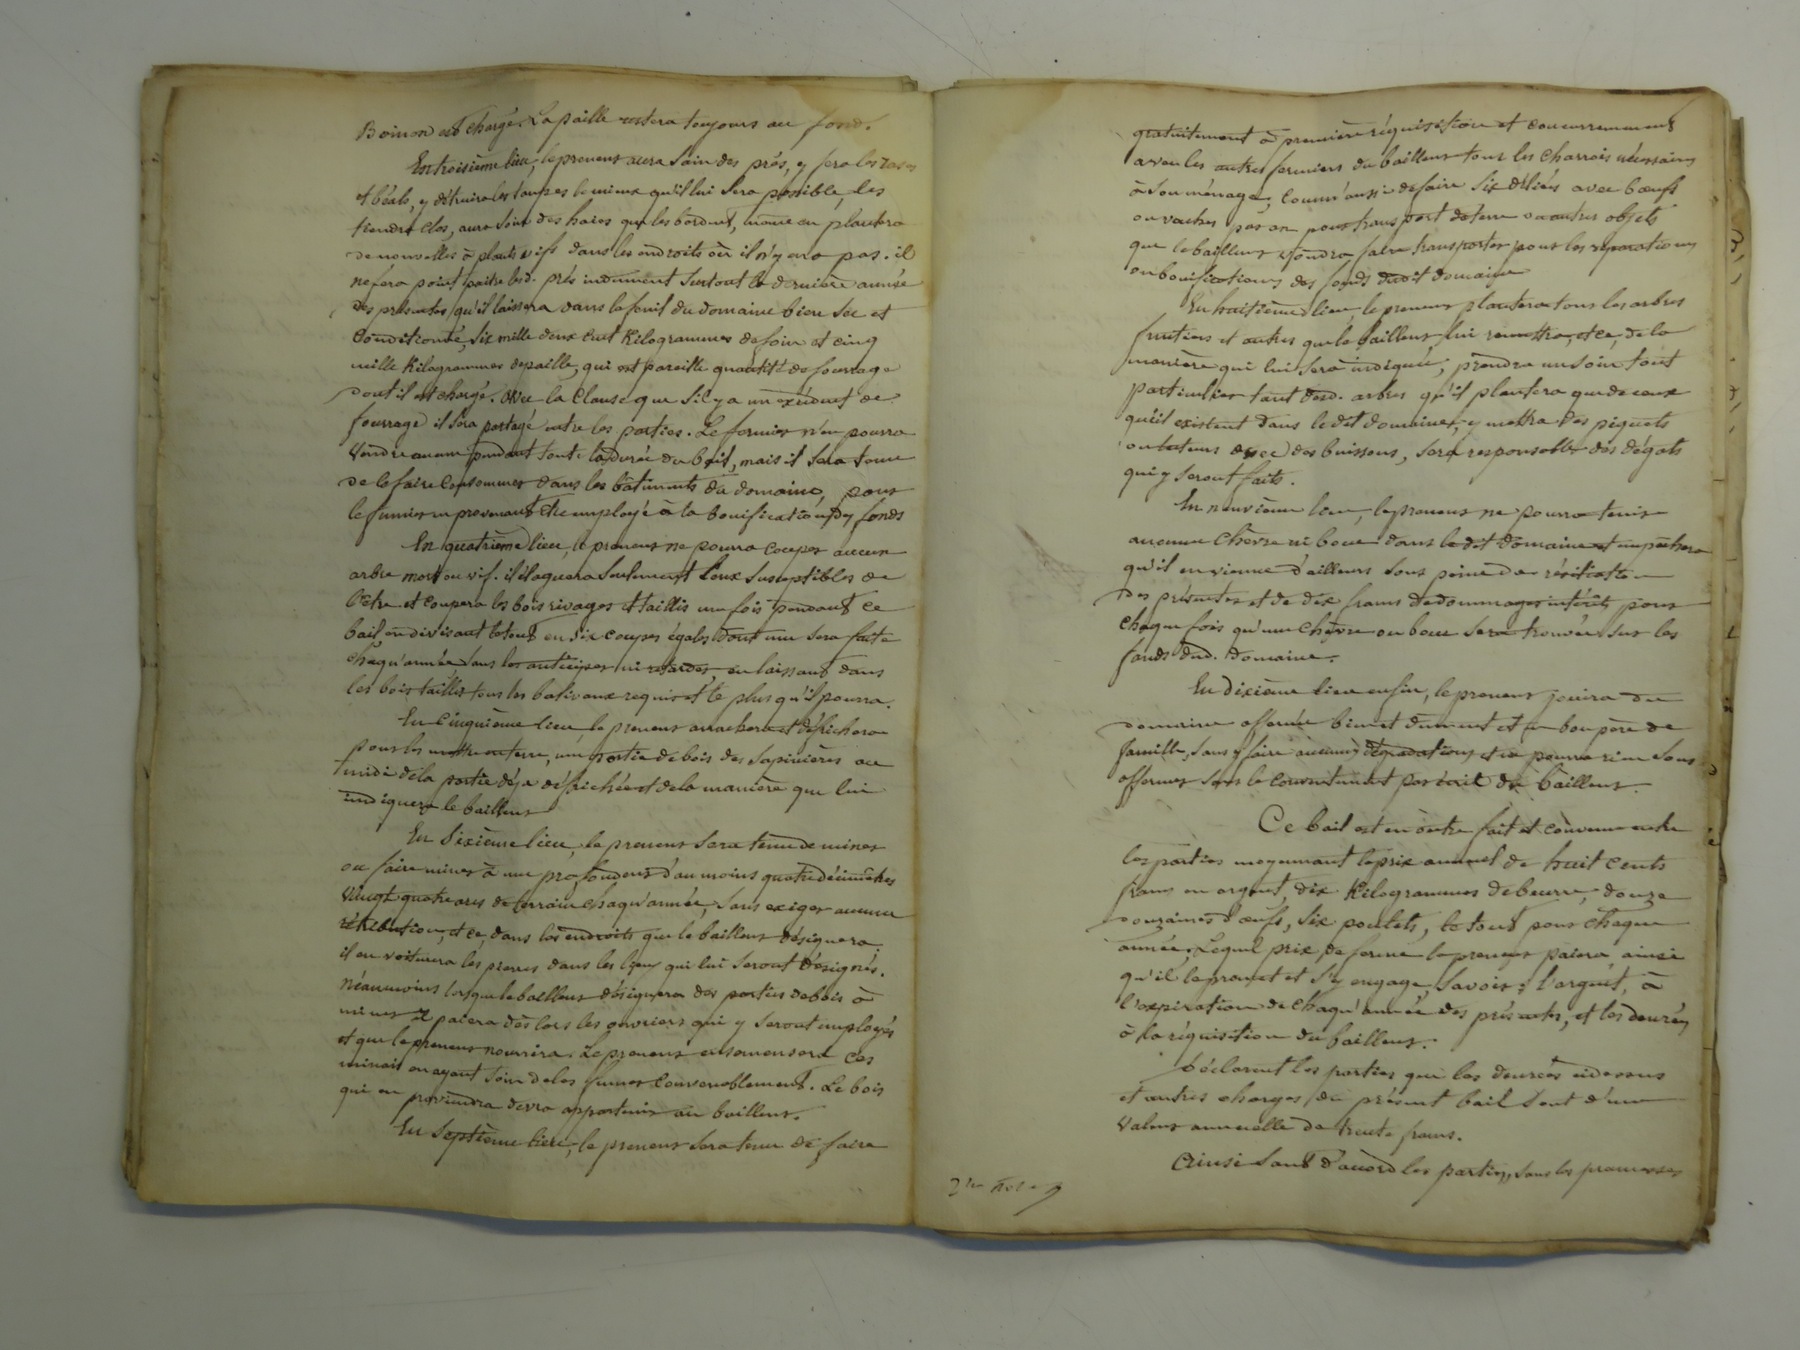 Boinon est chargé. La paille restera toujours au fond.
En troisième lieu, le preneur aura soin des prés, y fera les rases
et béals, y détruira les taupes le mieux qu'il lui sera possible, les
tiendra clos, aura soin des haies qui les bordent, même en plantera
de nouvelles à plants vifs dans les endroits où il n'y en a pas. il
ne fera point paître lesd. prés indument surtout la dernière année
des présentes, qu'il laissera dans le fenil du domaine bien sec et
conditionné, six mille deux cent kilogrammes de foin et cinq
mille kilogrammes de paille, qui est pareille quantité de fourrage
dont il est chargé. avec la clause que s'il y a un excédent de
fourrage il sera partagé entre les parties. Le fermier n'en pourra
vendre aucun pendant toute la durée du bail, mais il sera tenu
de le faire consommer dans les bâtiments du domaine, pour
le fumier en provenant être employé à la bonification des fonds
En quatrième lieu, le preneur ne pourra couper aucun
arbre mort ou vif. il élaguera seulement ceux susceptibles de
l'être et coupera les bois rivages et taillis une fois pendant ce
bail, en divisant le tout en six coupes égales dont une sera faite
chaqu'année sans les anticiper ni retarder, en laissant dans
les bois taillis tous les balivaux requis et le plus qu'il pourra.
En cinquième lieu, le preneur arrachera et défrichera
pour les mettre en terre, une portie de bois des sapinières au
midi de la partie déja défrichée et de la manière que lui
indiquera le bailleur
En sixième lieu, le preneur sera tenu de miner
ou faire miner à une profondeur d'au moins quatre décimètres
vingt quatre ares de terrain chaqu'année, sans exiger aucune
rétribution, et ce, dans les endroits que le bailleur désignera.
il en voiturera les pierres dans les lieux qui lui seront désignés.
néanmoins lorsque le bailleur désignera des parties de bois à
miner il paiera dès lors les ouvriers qui y seront employés
et que le preneur nourrira. Le preneur ensemensera ces
minais en ayant soin de les fumer convenablement. Le bois
qui en proviendra devra appartenir au bailleur.
En septième lieu, le preneur sera tenu de faire
gratuitement à première réquisition et concurremment
avec les autres fermiers du bailleur tous les charrois nécessaires
à son ménage, comm'aussi de faire six déliés avec bœufs
ou vaches par an pour transport de terre ou autres objets
que le bailleur voudra faire transporter pour les réparations
ou bonifications des fonds dudit domaine
En huitième lieu, le preneur plantera tous les arbres
fruitiers et autres que le bailleur lui remettra, et ce, de la
manière qui lui sera indiquée, prendra un soin tout
particulier tant desd. arbres qu'il plantera que de ceux
qu'il existent dans le dit domaine, y mettra des piquets
ou tuteurs avec des buissons, sera responsable des dégats
qui y seront faits.
En neuvième lieu, le preneur ne pourra tenir
aucune chèvre ni bouc dans le dit domaine et empêchera
qu'il en vienne d'ailleurs sous peine de résiliation
des présentes et de dix francs de dommages intérêts pour
chaque fois qu'une chèvre ou bouc sera trouvée sur les
fonds dud. domaine.
En dixième lieu enfin, le preneur jouira du
domaine affermé bien et dument et en bon père de
famille, sans y faire aucunes dégradations et ne pourra rien sous
affermer sans le consentement par écrit du bailleur.
Ce bail est en outre fait et convenu entre
les parties moyennant le prix annuel de huit cents
francs en argent, dix kilogrammes de beurre, douze
douzaines d'œufs, six poulets, le tout pour chaque
année; Lequel prix de ferme le preneur paiera ainsi
qu'il le promet et s'y engage, savoir: l'argent, à
l'expiration de chaqu'année des présentes, et les denrées
à la réquisition du bailleur.
Déclarent les parties que les denrées cidessus
et autres charges du présent bail sont d'une
valeur annuelle de trente francs.
Ainsi sont d'accord les parties, sous les promesses